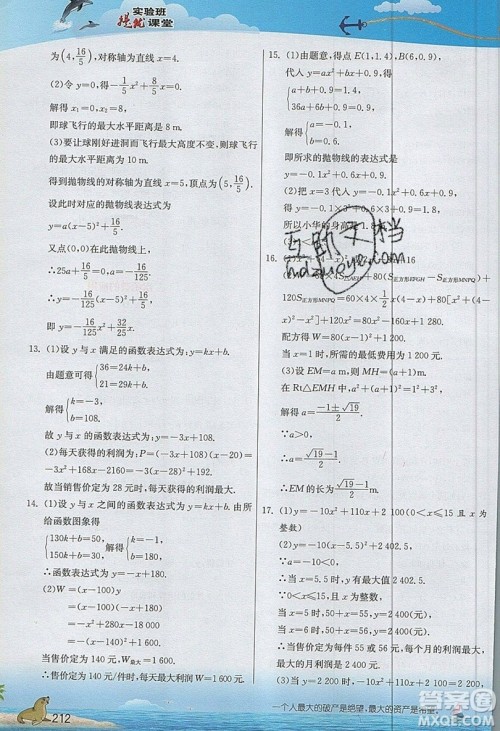 实验班
提优课堂
为(4,16/5),对称轴为直线x=4.
(2)令y=0,得-1/5x²+8/5x=0
解得x₁=0,x₂=8,
即球飞行的最大水平距离是8 m.
(3)要让球刚好进洞而飞行最大高度不变,则球飞行的最大水平距离为10 m.
得到抛物线的对称轴为x=5,顶点为(5,16/5).
设此时对应的抛物线表达式为
y=a(x-5)²+16/5
又点(0,0)在此抛物线上
∴25a+16/5=0,a=-16/125
∴y=-16/125(x-5)²+16/5
即y=-16/125x²+32/25x
13. (1)设y与x满足的函数表达式为:y=kx+b.
由题意可得{36=24k+b,
21=29k+b.
解得{k=-3,
b=108.
故y与x的函数表达式为:y=-3x+108.
(2)每天获得的利润为:P=(-3x+108)(x-20)
=-3x²+168x-2160=-3(x-28)²+192.
故当销售价定为28元时,每天获得的利润最大.
14. (1)设y与x之间的函数表达式为y=kx+b,由所给函数图象得
{130k+b=50,
150k+b=30,
解得{k=-1,
b=180.
∴函数表达式为y=-x+180.
(2)W=(x-100)y
=(x-100)(-x+180)
=-x²+280x-18 000
=-(x-140)²+1 600
当售价定为140元,W最大=1 600.
∴售价定为140元/件时,每天最大利润W=1 600元.
15. (1)由题意,得点E(1,1.4),B(6,0.9),
代入y=ax²+bx+0.9,得
{a+b+0.9=1.4,
36a+6b+0.9=0.9,
解得{a=-0.1,
b=0.6.
即所求的抛物线的表达式是
y=-0.1x²+0.6x+0.9
(2)把x=3代入y=-0.1x²+0.6x+0.9,得
y=-0.1×3²+0.6×3+0.9=1.8
所以小华的身高是1.8
(3)1<t<5
互助文档
hdzuoye.com
16.
120S正方形MNPQ=60×4×
配方得y=80(x-1)²+1200.
当x=1时,所需的最低费用为1 200元.
(3)设EM=a米,则MH=(a+1)米.
在Rt△EMH中,a²+(a+1)²=
解得a=(-1±√19)/2
∵a>0,
∴a=(√19-1)/2
∴EM的长度为(√19-1)/2米.
17. (1)y=-10x²+110x+2 100(0<x≤15且x为整数)
(2)y=-10(x-5.5)²+2 402.5
∵a=-10<0,∴当x=5.5时,y有最大值2 402.5.
∵0<x≤15,且x为整数
当x=5时,50+x=55,y=2 400(元),
当x=6时,50+x=56,y=2 400(元)
∴当售价定为每件55或56元,每个月的利润最大,最大的月利润是2 400元.
(3)当y=2 200时,
一个人最大的破产是绝望,最大的资产是希望。
212
答案圈
MXQE.COM